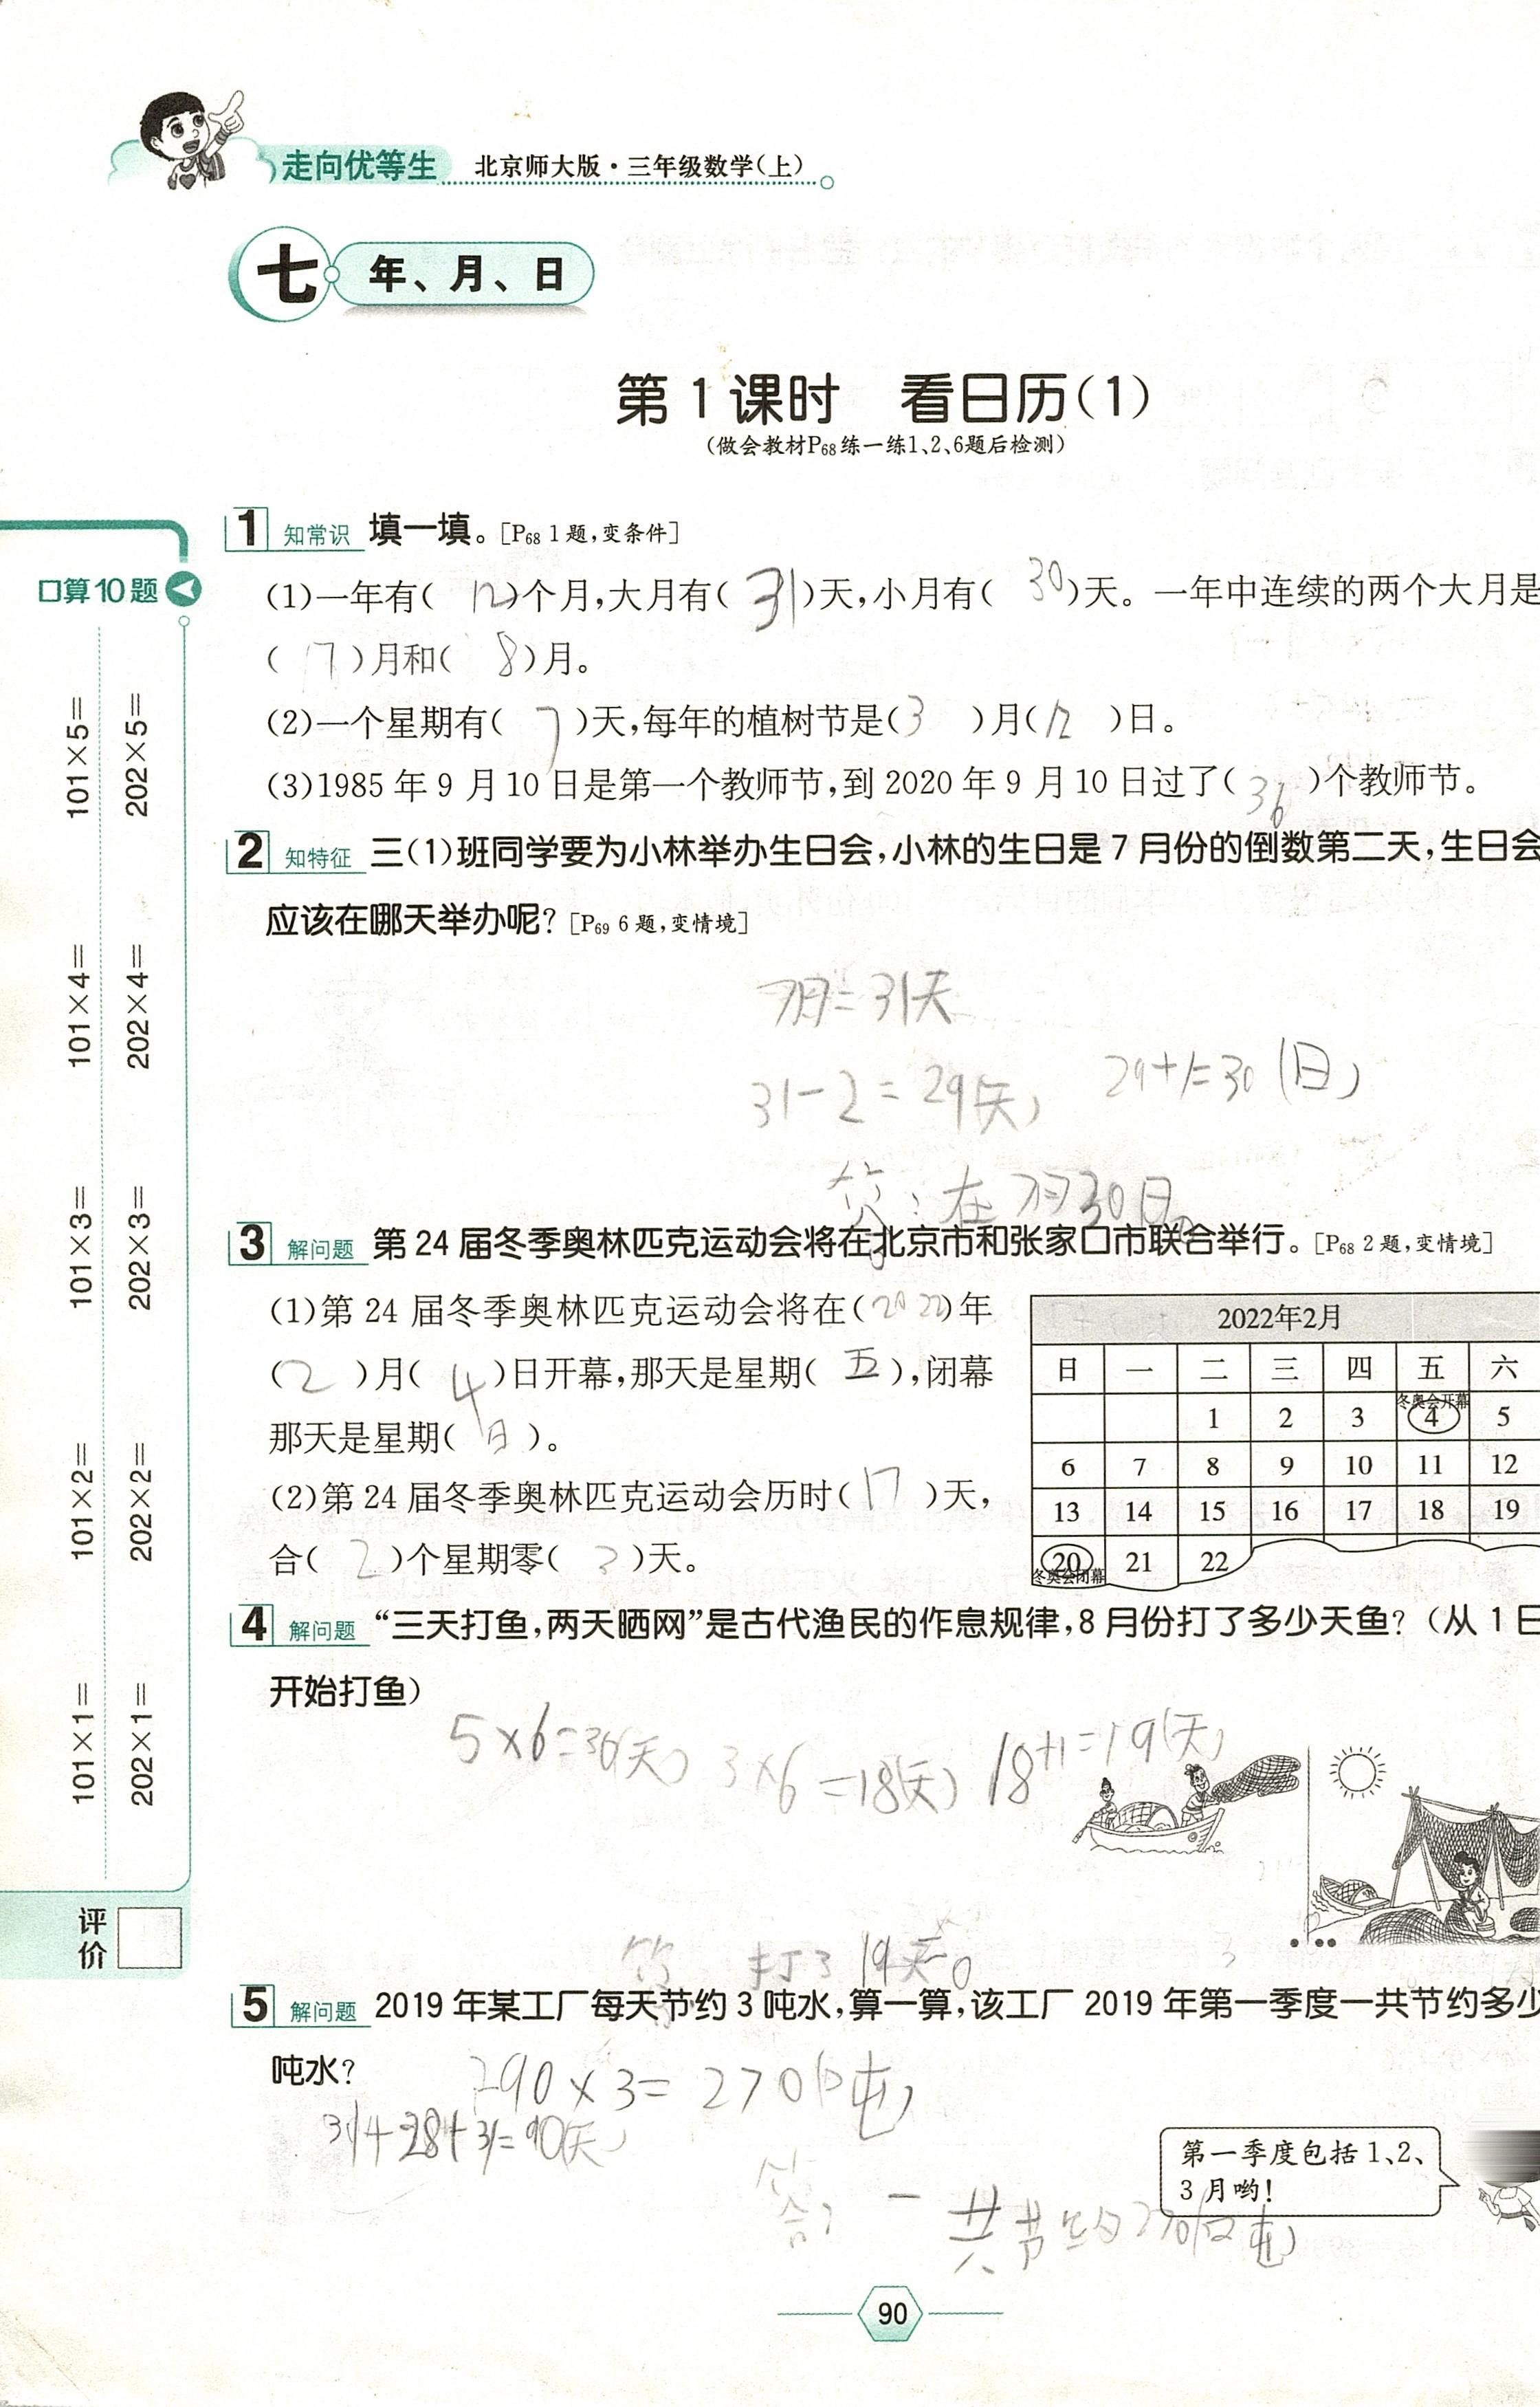 走向优等生 北京师大版·三年级数学(上)
七 年、月、日
第1课时 看日历(1)
(做会教材P68练一练1、2、6题后检测)
1 知常识 填一填。[P68 1题,变条件]
(1)一年有( 12 )个月,大月有( 31 )天,小月有( 30 )天。一年中连续的两个大月是
( 7 )月和( 8 )月。
(2)一个星期有( 7 )天,每年的植树节是( 3 )月( 12 )日。
(3)1985年9月10日是第一个教师节,到2020年9月10日过了( 36 )个教师节。
2 知特征 三(1)班同学要为小林举办生日会,小林的生日是7月份的倒数第二天,生日会
应该在哪天举办呢?[P69 6题,变情境]
7月=31天
31-2=29(天) 29+1=30(日)
答:在7月30日。
3 解问题 第24届冬季奥林匹克运动会将在北京市和张家口市联合举行。[P68 2题,变情境]
(1)第24届冬季奥林匹克运动会将在( 2022 )年
( 2 )月( 4 )日开幕,那天是星期( 五 ),闭幕
那天是星期( 日 )。
(2)第24届冬季奥林匹克运动会历时( 17 )天,
合( 2 )个星期零( 3 )天。
2022年2月
日 一 二 三 四 五 六
冬奥会开幕
1 2 3 4 5
6 7 8 9 10 11 12
13 14 15 16 17 18 19
20 21 22
冬奥会闭幕
4 解问题 “三天打鱼,两天晒网”是古代渔民的作息规律,8月份打了多少天鱼?(从1日
开始打鱼)
5×6=30(天) 3×6=18(天) 18+1=19(天)
答 打了19天。
5 解问题 2019年某工厂每天节约3吨水,算一算,该工厂2019年第一季度一共节约多少
吨水?
90×3=270(吨)
31+28+31=90(天)
第一季度包括1、2、
3月哟!
答: 一共节约270吨
90
口算10题
101×5=
202×5=
101×4=
202×4=
101×3=
202×3=
101×2=
202×2=
101×1=
202×1=
评价